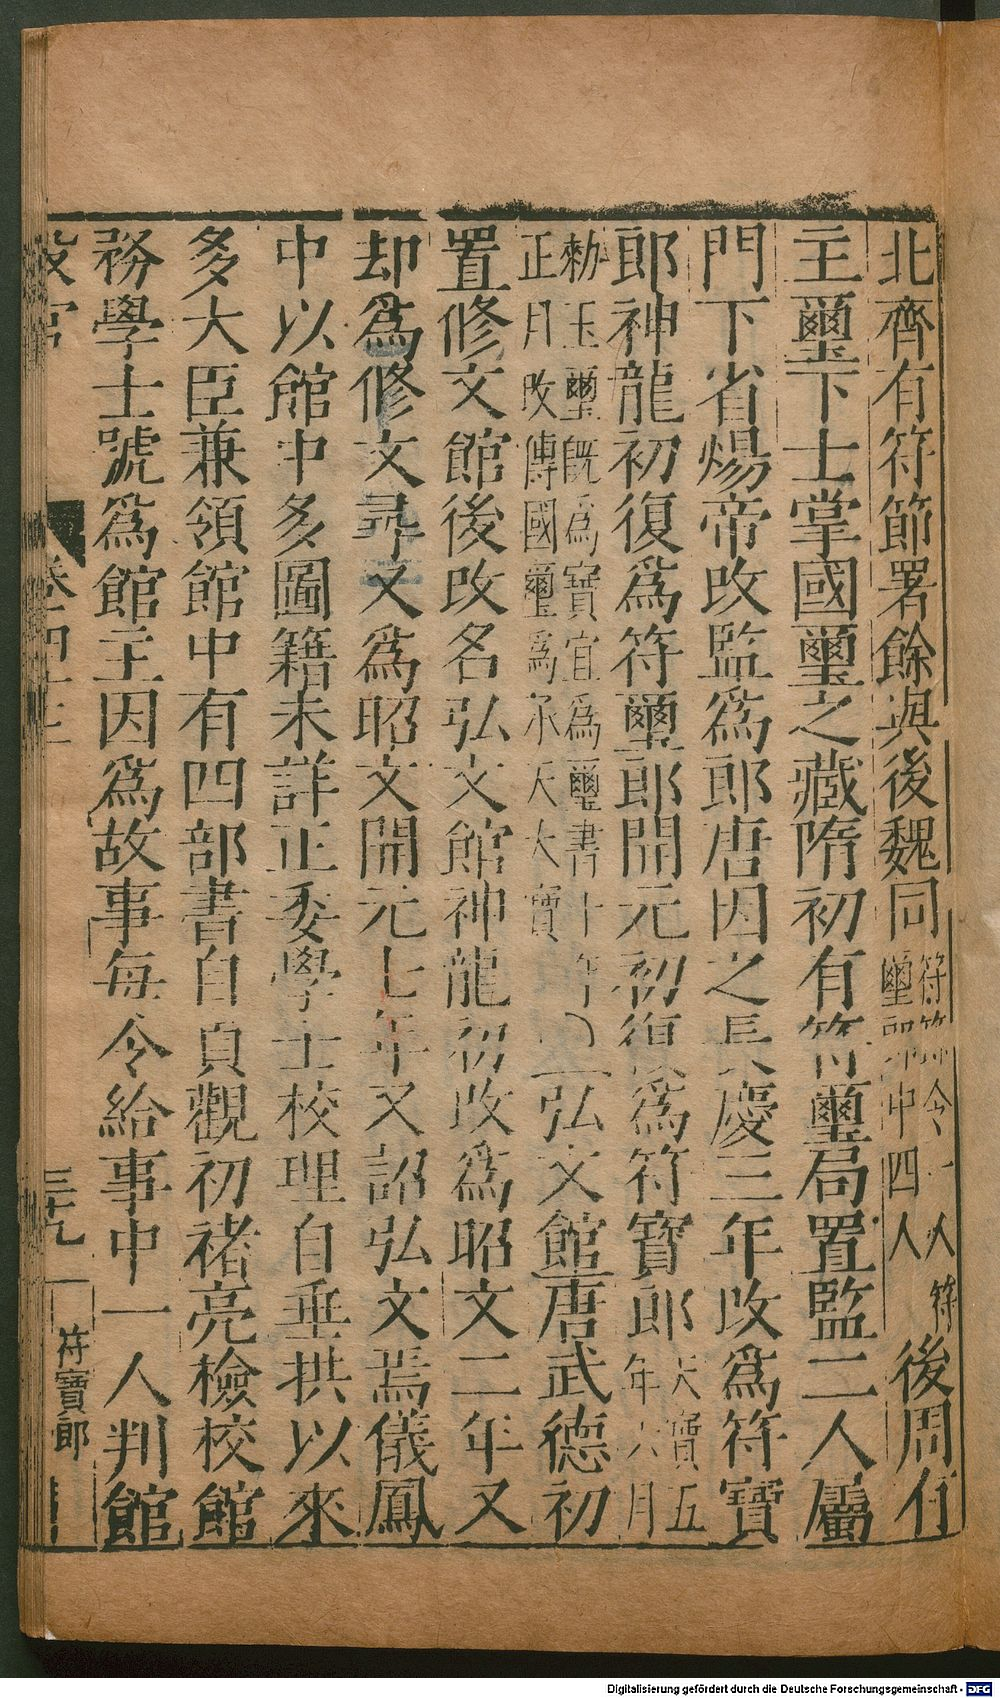 北齊有符節署餘與後魏同符節令一人符璽郎中四人後周有
主璽下士掌國璽之藏隋初有符璽局置監二人屬
門下省煬帝改監爲郎唐因之長慶三年改爲符寶
郎神龍初復爲符璽郎開元初復爲符寶郎天寶五年六月
勑玉璽旣爲寶宜爲璽書十年正月改傳國璽爲承天大寶〇弘文館唐武德初
置修文館後改名弘文館神龍初改爲昭文二年又
却爲修文尋又爲昭文開元七年又詔弘文焉儀鳳
中以館中多圖籍未詳正委學士校理自垂拱以來
多大臣兼領館中有四部書自貞觀初褚亮檢校館
務學士號爲館主因爲故事每令給事中一人判館
卷
三十九
符寶郎
Digitalisierung gefördert durch die Deutsche Forschungsgemeinschaft - DFG